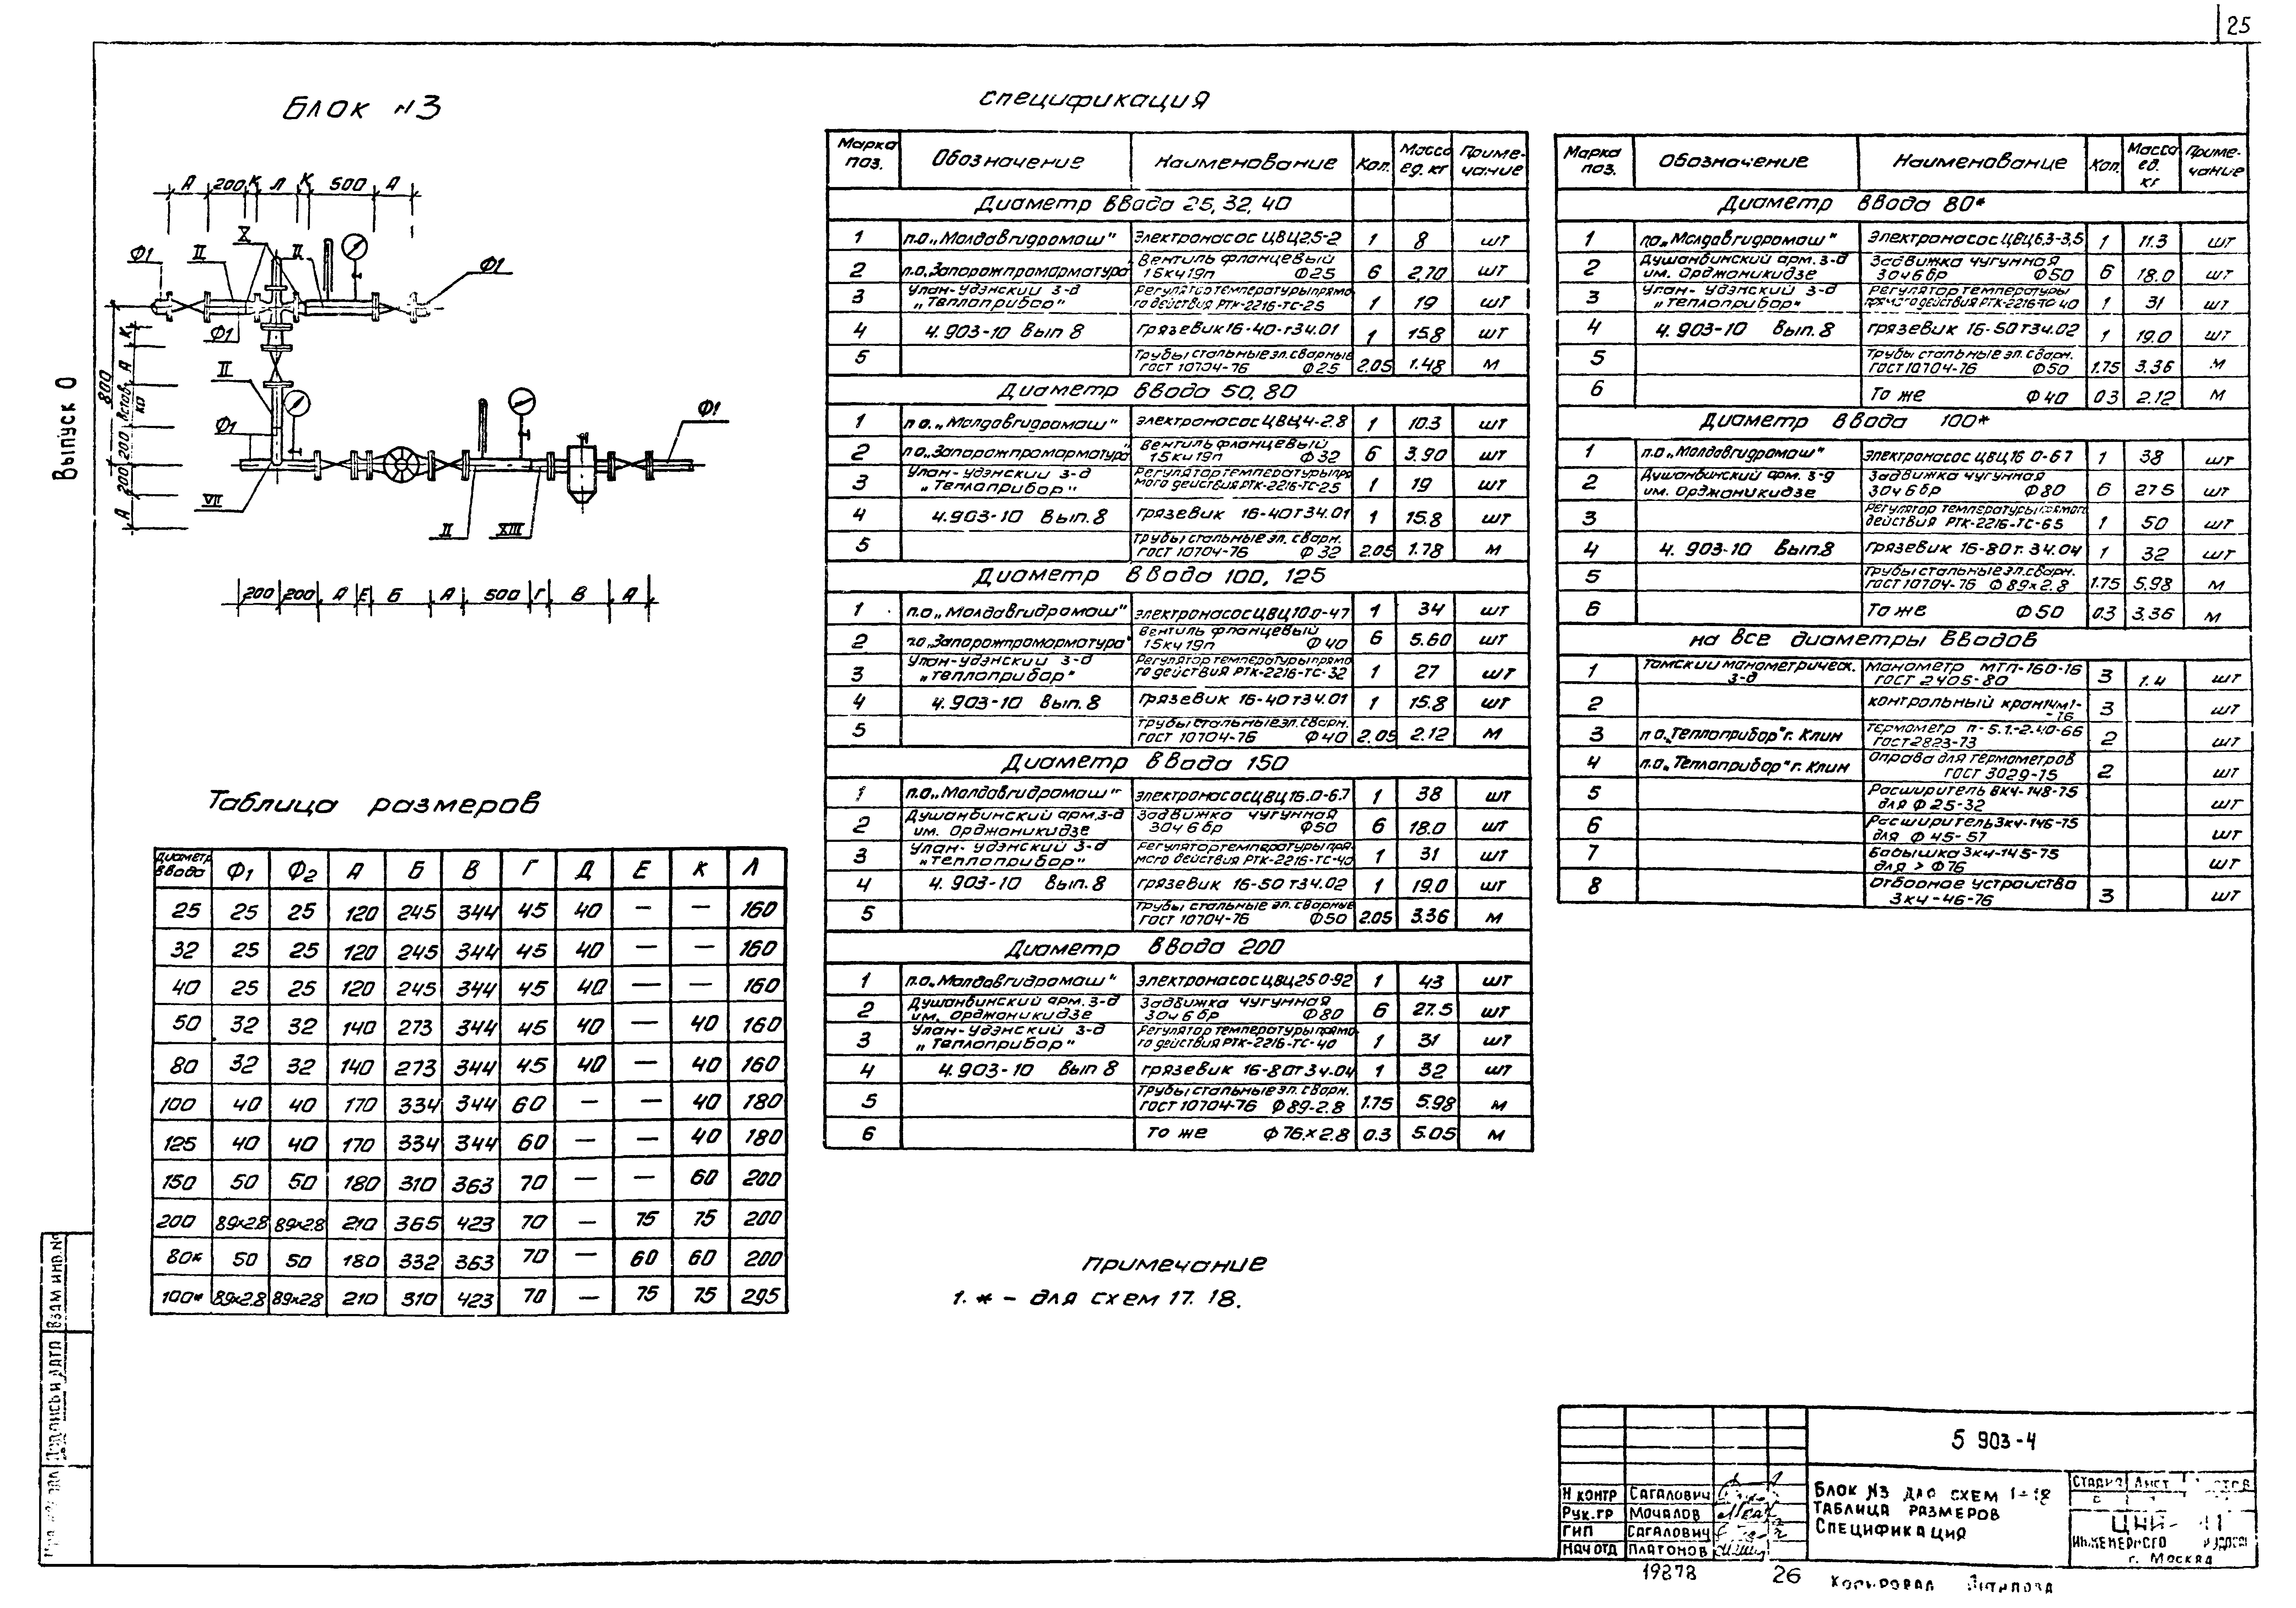 25
Выпуск 0
Блок №3
А 200 К Л К 500 А
Ф1 II X II Ф1
Ф1
II
Ф1
VII
II XIII
Ф1
800
К
А
200
200
А
200 200 А Е Б А 500 Г В А
Таблица размеров
Диаметр ввода Ф1 Ф2 А Б В Г Д Е К Л
25 25 25 120 245 344 45 40 — — 160
32 25 25 120 245 344 45 40 — — 160
40 25 25 120 245 344 45 40 — — 160
50 32 32 140 273 344 45 40 — 40 160
80 32 32 140 273 344 45 40 — 40 160
100 40 40 170 334 344 60 — — 40 180
125 40 40 170 334 344 60 — — 40 180
150 50 50 180 310 363 70 — — 60 200
200 89×2.8 89×2.8 210 365 423 70 — 75 75 200
80* 50 50 180 332 363 70 — 60 60 200
100* 89×2.8 89×2.8 210 310 423 70 — 75 75 295
Спецификация
Марка поз. Обозначение Наименование Кол. Масса ед. кг Примечание
Диаметр ввода 25, 32, 40
1 п.о. „Молдавгидромаш" Электронасос ЦВЦ2.5-2 1 8 шт
2 п.о. „Запорожпромарматура" Вентиль фланцевый 15кч19п Ф25 6 2,70 шт
3 Улан-Удэнский з-д „Теплоприбор" Регулятор температуры прямого действия РТК-2216-ТС-25 1 19 шт
4 4.903-10 Вып 8 Грязевик 16-40-т34.01 1 15.8 шт
5 Трубы стальные эл. сварные ГОСТ 10704-76 Ф25 2.05 1.48 м
Диаметр ввода 50, 80
1 п о. „Молдавгидромаш" Электронасос ЦВЦ4-2.8 1 10.3 шт
2 по „Запорожпромарматура" Вентиль фланцевый 15кч19п Ф32 6 3.90 шт
3 Улан-Удэнский з-д „Теплоприбор" Регулятор температуры прямого действия РТК-2216-ТС-25 1 19 шт
4 4.903-10 Вып.8 Грязевик 16-40т34.01 1 15.8 шт
5 Трубы стальные эл. сварн. ГОСТ 10704-76 Ф32 2.05 1.78 м
Диаметр ввода 100, 125
1 п.о „Молдавгидромаш" Электронасос ЦВЦ10.0-4.7 1 34 шт
2 п.о „Запорожпромарматура" Вентиль фланцевый 15кч19п Ф40 6 5.60 шт
3 Улан-Удэнский з-д „Теплоприбор" Регулятор температуры прямого действия РТК-2216-ТС-32 1 27 шт
4 4.903-10 Вып. 8 Грязевик 16-40т34.01 1 15.8 шт
5 Трубы стальные эл. сварн. ГОСТ 10704-76 Ф40 2.05 2.12 м
Диаметр ввода 150
1 п.о „Молдавгидромаш" Электронасос ЦВЦ16.0-6.7 1 38 шт
2 Душанбинский арм. з-д им. Орджоникидзе Задвижка чугунная 30ч6бр Ф50 6 18.0 шт
3 Улан-Удэнский з-д „Теплоприбор" Регулятор температуры прямого действия РТК-2216-ТС-40 1 31 шт
4 4.903-10 Вып. 8 Грязевик 16-50т34.02 1 19.0 шт
5 Трубы стальные эл. сварные ГОСТ 10704-76 Ф50 2.05 3.36 м
Диаметр ввода 200
1 п.о. „Молдавгидромаш" Электронасос ЦВЦ25.0-9.2 1 43 шт
2 Душанбинский арм. з-д им. Орджоникидзе Задвижка чугунная 30ч6бр Ф80 6 27.5 шт
3 Улан-Удэнский з-д „Теплоприбор" Регулятор температуры прямого действия РТК-2216-ТС-40 1 31 шт
4 4.903-10 Вып 8 Грязевик 16-80т34.04 1 32 шт
5 Трубы стальные эл. сварн. ГОСТ 10704-76 Ф89-2.8 1.75 5.98 м
6 То же Ф76×2.8 0.3 5.05 м
Примечание
1. * – для схем 17. 18.
Марка поз. Обозначение Наименование Кол. Масса ед. кг Примечание
Диаметр ввода 80*
1 по „Молдавгидромаш" Электронасос ЦВЦ6,3-3,5 1 11.3 шт
2 Душанбинский арм. з-д им. Орджоникидзе Задвижка чугунная 30ч6бр Ф50 6 18.0 шт
3 Улан-Удэнский з-д „Теплоприбор" Регулятор температуры прямого действия РТК-2216-ТС-40 1 31 шт
4 4.903-10 Вып. 8 Грязевик 16-50т34.02 1 19.0 шт
5 Трубы стальные эл. сварн. ГОСТ 10704-76 Ф50 1.75 3.36 м
6 То же Ф40 0.3 2.12 м
Диаметр ввода 100*
1 п.о „Молдавгидромаш" Электронасос ЦВЦ16.0-6.7 1 38 шт
2 Душанбинский арм. з-д им. Орджоникидзе Задвижка чугунная 30ч6бр Ф80 6 27.5 шт
3 Регулятор температуры прямого действия РТК-2216-ТС-65 1 50 шт
4 4.903-10 Вып.8 Грязевик 16-80т.34.04 1 32 шт
5 Трубы стальные эл. сварн. ГОСТ 10704-76 Ф89×2.8 1.75 5.98 м
6 То же Ф50 0.3 3.36 м
На все диаметры вводов
1 Томский манометрическ. з-д Манометр МТП-160-16 ГОСТ 2405-80 3 1.4 шт
2 Контрольный кран14м1-16 3 шт
3 п о „Теплоприбор" г. Клин Термометр П-5.1-2.40-66 ГОСТ 2823-73 2 шт
4 п.о „Теплоприбор" г. Клин Оправа для термометров ГОСТ 3029-75 2 шт
5 Расширитель 8кч-148-75 для Ф25-32 шт
6 Расширитель 3кч-146-75 для Ф45-57 шт
7 Бобышка 3кч-145-75 для > Ф76 шт
8 Отборное устройства 3кч-46-76 3 шт
5 903-4
Н контр Сагалович
Рук.гр Мочалов
ГИП Сагалович
Нач отд Платонов
Блок №3 для схем 1÷18
Таблица размеров
Спецификация
Стадия Лист
инженерного
г. Москва
Взам инв.№
Подпись и дата
19878
26
Копировал